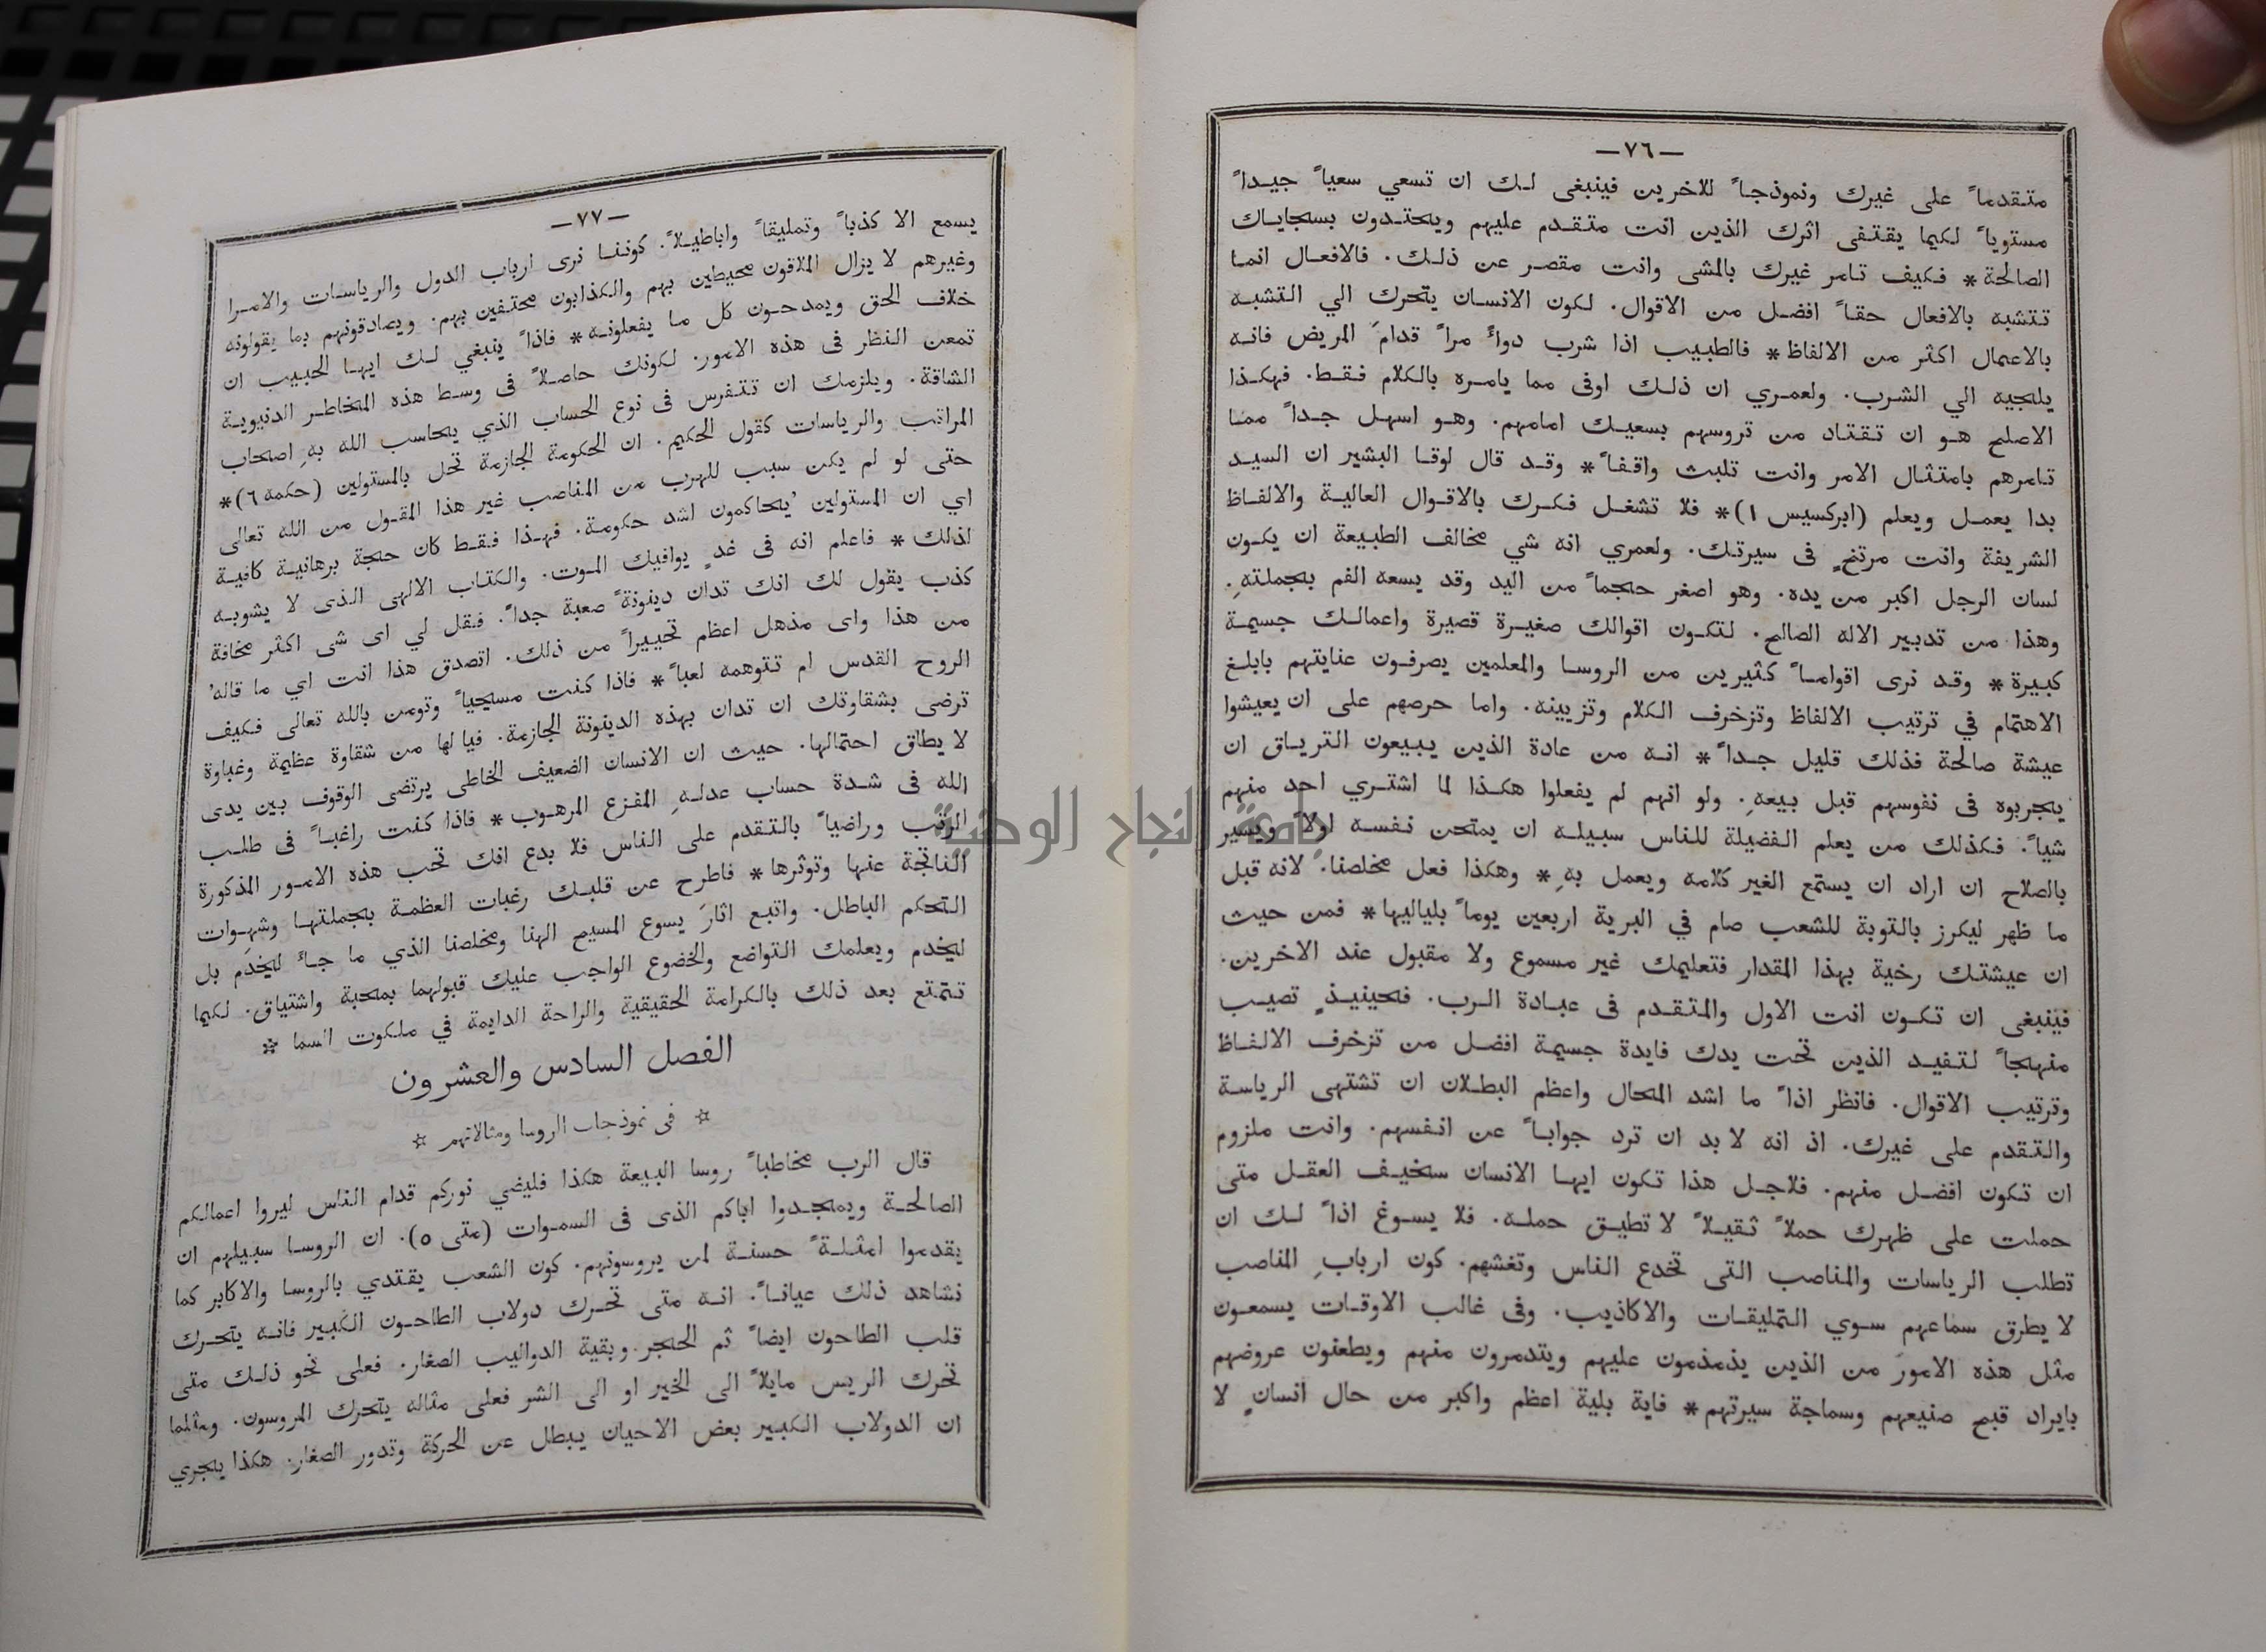 —٧٦—
متقدماً على غيرك ونموذجاً للاخرين فينبغى لك ان تسعي سعياً جيداً
مستوياً لكيما يقتفى اثرك الذين انت متقدم عليهم ويحتدون بسجاياك
الصالحة * فكيف تامر غيرك بالمشى وانت مقصر عن ذلك. فالافعال انما
تتشبه بالافعال حقاً افضل من الاقوال. لكون الانسان يتحرك الي التشبه
بالاعمال اكثر من الالفاظ * فالطبيب اذا شرب دوآً مراً قدامَ المريض فانه
يلجيه الي الشرب. ولعمري ان ذلك اوفى مما يامره بالكلام فقط. فهكذا
الاصلح هو ان تقتاد من تروسهم بسعيك امامهم. وهو اسهل جداً مما
تامرهم بامتثال الامر وانت تلبث واقفاً * وقد قال لوقا البشير ان السيد
بدا يعمل ويعلم (ابركسيس ١) * فلا تشغل فكرك بالاقوال العالية والالفاظ
الشريفة وانت مرتخٍ فى سيرتك. ولعمري انه شي مخالف الطبيعة ان يكون
لسان الرجل اكبر من يده. وهو اصغر حجماً من اليد وقد يسعه الفم بجملتهِ.
وهذا من تدبير الاله الصالح. لتكون اقوالك صغيرة قصيرة واعمالك جسيمة
كبيرة * وقد نرى اقواماً كثيرين من الروسا والمعلمين يصرفون عنايتهم بابلغ
الاهتمام في ترتيب الالفاظ وتزخرف الكلام وتزيينه. واما حرصهم على ان يعيشوا
عيشة صالحة فذلك قليل جداً * انه من عادة الذين يبيعون الترياق ان
يجربوه فى نفوسهم قبل بيعهِ. ولو انهم لم يفعلوا هكذا لما اشتري احد منهم
شياً. فكذلك من يعلم الفضيلة للناس سبيله ان يمتحن نفسه اولاً ويسير
بالصلاح ان اراد ان يستمع الغير كلامه ويعمل بهِ * وهكذا فعل مخلصنا. لانه قبل
ما ظهر ليكرز بالتوبة للشعب صام في البرية اربعين يوماً بلياليها * فمن حيث
ان عيشتك رخية بهذا المقدار فتعليمك غير مسموع ولا مقبول عند الاخرين.
فينبغى ان تكون انت الاول والمتقدم فى عبادة الرب. فحينيذٍ تصيب
منهجاً لتفيد الذين تحت يدك فايدة جسيمة افضل من تزخرف الالفاظ
وترتيب الاقوال. فانظر اذاً ما اشد المحال واعظم البطلان ان تشتهى الرياسة
والتقدم على غيرك. اذ انه لا بد ان ترد جواباً عن انفسهم. وانت ملزوم
ان تكون افضل منهم. فلاجل هذا تكون ايها الانسان سخيف العقل متى
حملت على ظهرك حملاً ثقيلاً لا تطيق حمله. فلا يسوغ اذاً لك ان
تطلب الرياسات والمناصب التى تخدع الناس وتغشهم. كون اربابِ المناصب
لا يطرق سماعهم سوي التمليقات والاكاذيب. وفى غالب الاوقات يسمعون
مثل هذه الامورَ من الذين يذمذمون عليهم ويتدمرون منهم ويطعنون عروضهم
بايراد قبح صنيعهم وسماجة سيرتهم * فاية بلية اعظم واكبر من حال انسانٍ لا
—٧٧—
يسمع الا كذباً وتمليقاً واباطيلاً. كوننا نرى ارباب الدول والرياسات والامرا
وغيرهم لا يزال الملاقون محيطين بهم والكذابون محتفين بهم. ويصادقونهم بما يقولونه
خلاف الحق ويمدحون كل ما يفعلونه * فاذاً ينبغي لك ايها الحبيب ان
تمعن النظر فى هذه الامور. لكونك حاصلاً فى وسط هذه المخاطر الدنيوية
الشاقة. ويلزمك ان تتفرس فى نوع الحساب الذي يحاسب الله بهِ اصحاب
المراتب والرياسات كقول الحكيم. ان الحكومة الجازمة تحل بالمستولين (حكمه ٦) *
حتى لو لم يكن سبب للهرب من المناصب غير هذا المقول من الله تعالى
اي ان المستولين يُحاكمون اشد حكومة. فهذا فقط كان حجة برهانية كافية
لذلك * فاعلم انه فى غدٍ يوافيك الموت. والكتاب الالهى الذى لا يشوبه
كذب يقول لك انك تدان دينونةً صعبة جداً. فقل لي اى شى اكثر مخافة
من هذا واى مذهل اعظم تحييراً من ذلك. اتصدق هذا انت اي ما قاله
الروح القدس ام تتوهمه لعباً * فاذا كنت مسيحياً وتومن بالله تعالى فكيف
ترضى بشقاوتك ان تدان بهذه الدينونة الجازمة. فيا لها من شقاوة عظيمة وغباوة
لا يطاق احتمالها. حيث ان الانسان الضعيف الخاطى يرتضى الوقوف بين يدى
الله فى شدة حساب عدلهِ المفزع المرهوب * فاذا كنت راغباً فى طلب
الرتب وراضياً بالتقدم على الناس فلا بدع انك تحب هذه الامور المذكورة
الناتجة عنها وتوثرها * فاطرح عن قلبك رغبات العظمة بجملتها وشهوات
التحكم الباطل. واتبع اثارَ يسوع المسيح الهنا ومخلصنا الذي ما جآ ليُخدَم بل
ليخدم ويعلمك التواضع والخضوع الواجب عليك قبولهما بمحبة واشتياق. لكيما
تتمتع بعد ذلك بالكرامة الحقيقية والراحة الدايمة في ملكوت السما ☆
الفصل السادس والعشرون
☆ فى نموذجات الروسا ومثالاتهم ☆
قال الرب مخاطباً روسا البيعة هكذا فليضي نوركم قدام الناس ليروا اعمالكم
الصالحة ويمجدوا اباكم الذى فى السموات (متى ٥). ان الروسا سبيلهم ان
يقدموا امثلةً حسنة لمن يروسونهم. كون الشعب يقتدي بالروسا والاكابر كما
نشاهد ذلك عياناً. انه متى تحرك دولاب الطاحون الكبير فانه يتحرك
قلب الطاحون ايضاً ثم الحجر وبقية الدواليب الصغار. فعلى نحو ذلك متى
تحرك الريس مايلاً الى الخير او الى الشر فعلى مثاله يتحرك المروسون. ومثلما
ان الدولاب الكبير بعض الاحيان يبطل عن الحركة وتدور الصغار. هكذا يجري
جامعة النجاح الوطنية